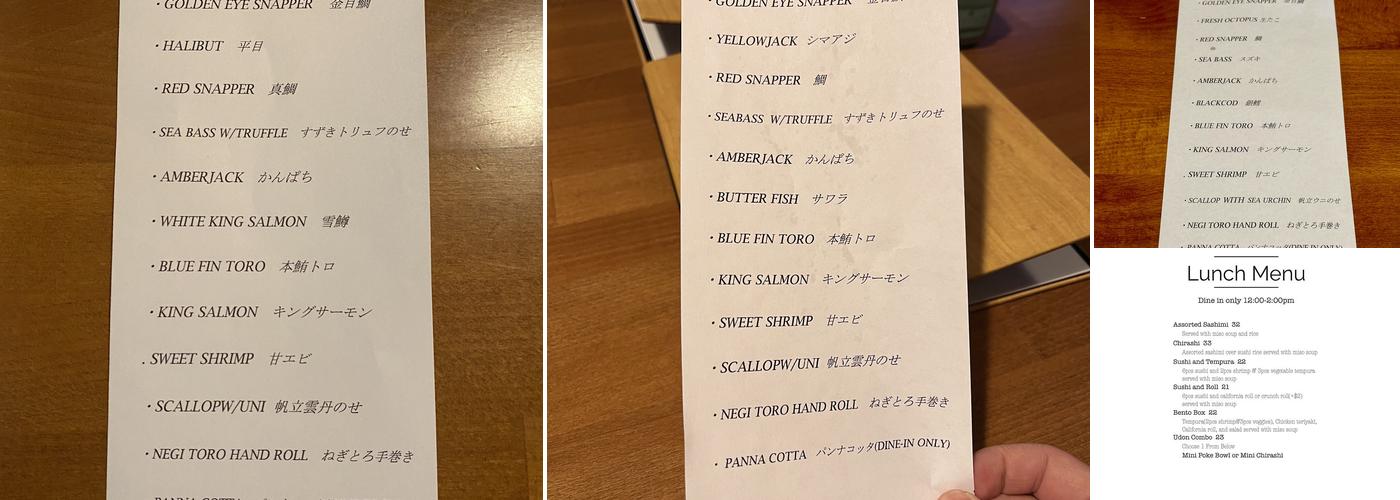 · GOLDEN EYE SNAPPER 金目鯛
· HALIBUT 平目
· RED SNAPPER 真鯛
· SEA BASS W/TRUFFLE すずきトリュフのせ
· AMBERJACK かんぱち
· WHITE KING SALMON 雪鱒
· BLUE FIN TORO 本鮪トロ
· KING SALMON キングサーモン
. SWEET SHRIMP 甘エビ
· SCALLOPW/UNI 帆立雲丹のせ
· NEGI TORO HAND ROLL ねぎとろ手巻き
· GOLDEN EYE SNAPPER
· YELLOWJACK シマアジ
· RED SNAPPER 鯛
· SEABASS W/TRUFFLE すずきトリュフのせ
· AMBERJACK かんぱち
· BUTTER FISH サワラ
· BLUE FIN TORO 本鮪トロ
· KING SALMON キングサーモン
· SWEET SHRIMP 甘エビ
· SCALLOPW/UNI 帆立雲丹のせ
· NEGI TORO HAND ROLL ねぎとろ手巻き
· PANNA COTTA パンナコッタ(DINE-IN ONLY)
· GOLDEN EYE SNAPPER 金目鯛
· FRESH OCTOPUS 生たこ
· RED SNAPPER 鯛
· SEA BASS スズキ
· AMBERJACK かんぱち
· BLACKCOD 銀鱈
· BLUE FIN TORO 本鮪トロ
· KING SALMON キングサーモン
. SWEET SHRIMP 甘エビ
· SCALLOP WITH SEA URCHIN 帆立ウニのせ
· NEGI TORO HAND ROLL ねぎとろ手巻き
· PANNA COTTA パンナコッタ(DINE IN ONLY)
Lunch Menu
Dine in only 12:00-2:00pm
Assorted Sashimi 32
Served with miso soup and rice
Chirashi 33
Assorted sashimi over sushi rice served with miso soup
Sushi and Tempura 22
6pcs sushi and 2pcs shrimp & 3pcs vegetable tempura
served with miso soup
Sushi and Roll 21
6pcs sushi and california roll or crunch roll(+$2)
served with miso soup
Bento Box 22
Tempura(2pcs shrimp&3pcs veggies), Chicken teriyaki,
California roll, and salad served with miso soup
Udon Combo 23
Choose 1 From Below
Mini Poke Bowl or Mini Chirashi